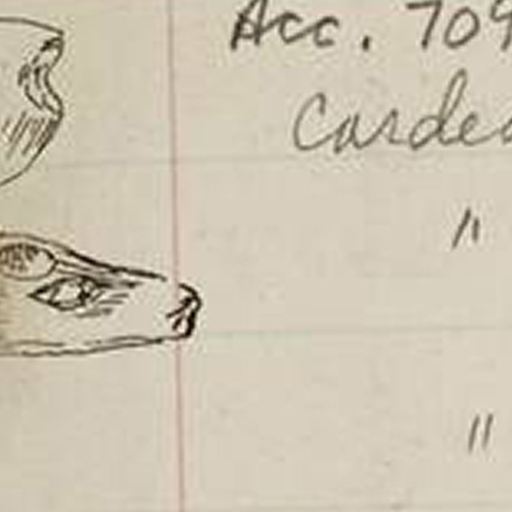 Acc. 709
Carded
"
"